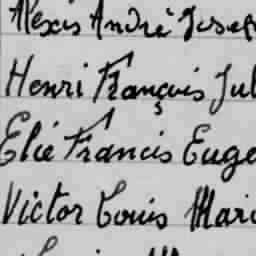 Alexis André Josep
Henri François Jul
Elie Francis Euge
Victor Louis Mari